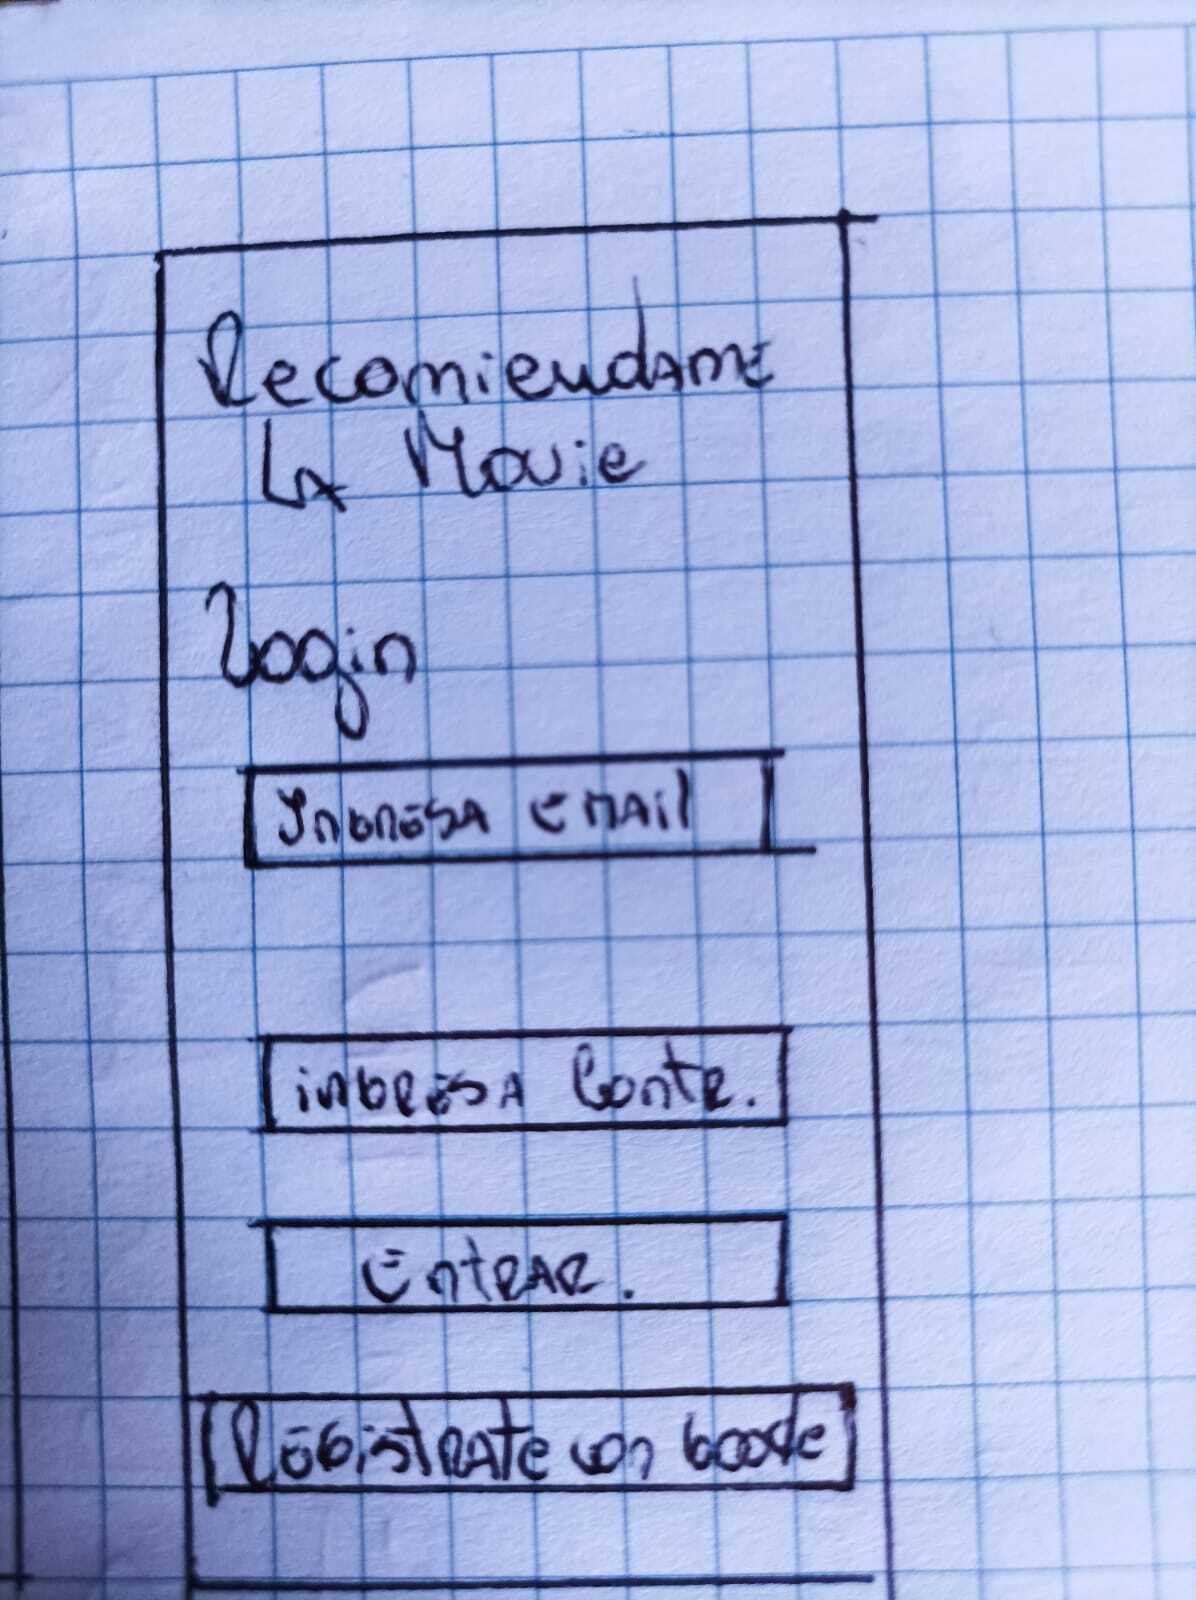 Recomiendame
La Movie
Login
Ingresa email
ingresa Contr.
Entrar.
Registrate con Google